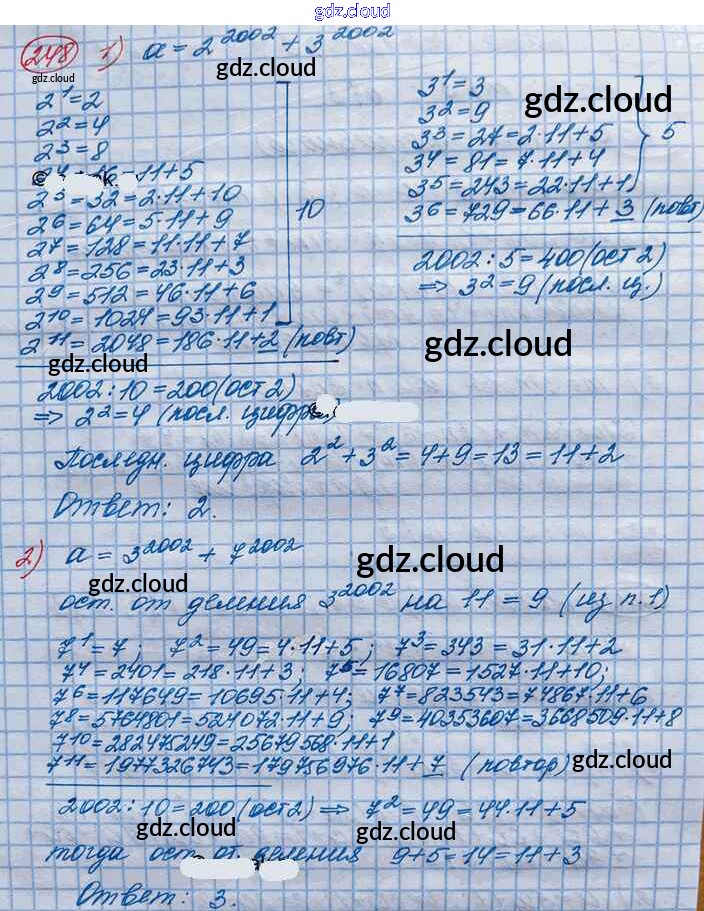 gdz.cloud
248 1) a = 2^2002 + 3^2002
gdz.cloud
gdz.cloud
2^1 = 2
2^2 = 4
2^3 = 8
11+5
2^5 = 32 = 2·11+10
2^6 = 64 = 5·11+9
2^7 = 128 = 11·11+7
2^8 = 256 = 23·11+3
2^9 = 512 = 46·11+6
2^10 = 1024 = 93·11+1
2^11 = 2048 = 186·11+2 (повт)
10
gdz.cloud
2002 : 10 = 200 (ост 2)
=> 2^2 = 4 (посл. цифра)
gdz.cloud
3^1 = 3
3^2 = 9
3^3 = 27 = 2·11+5
3^4 = 81 = 7·11+4
3^5 = 243 = 22·11+1
5
3^6 = 729 = 66·11+3 (повт)
2002 : 5 = 400 (ост 2)
=> 3^2 = 9 (посл. ц.)
gdz.cloud
Последн. цифра 2^2 + 3^2 = 4+9 = 13 = 11+2
Ответ: 2.
2) a = 3^2002 + 7^2002
gdz.cloud
gdz.cloud
ост. от деления 3^2002 на 11 = 9 (из п.1)
7^1 = 7; 7^2 = 49 = 4·11+5; 7^3 = 343 = 31·11+2
7^4 = 2401 = 218·11+3; 7^5 = 16807 = 1527·11+10;
7^6 = 117649 = 10695·11+4; 7^7 = 823543 = 74867·11+6
7^8 = 5764801 = 524072·11+9; 7^9 = 40353607 = 3668509·11+8
7^10 = 282475249 = 25679568·11+1
7^11 = 1977326743 = 179756976·11+7 (повтор)
gdz.cloud
2002 : 10 = 200 (ост 2) => 7^2 = 49 = 44·11+5
gdz.cloud
gdz.cloud
тогда ост. от деления 9+5 = 14 = 11+3
Ответ: 3.
gdz.cloud